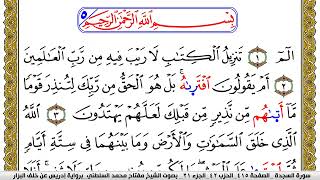 بِسْمِ اللَّهِ الرَّحْمَٰنِ الرَّحِيمِ
الٓمٓ ١ تَنزِيلُ الْكِتَٰبِ لَا رَيْبَ فِيهِ مِن رَّبِّ الْعَٰلَمِينَ
٢ أَمْ يَقُولُونَ افْتَرَىٰهُ بَلْ هُوَ الْحَقُّ مِن رَّبِّكَ لِتُنذِرَ قَوْمًا
مَّا أَتَىٰهُم مِّن نَّذِيرٍ مِّن قَبْلِكَ لَعَلَّهُمْ يَهْتَدُونَ ٣ اللَّهُ
الَّذِي خَلَقَ السَّمَٰوَٰتِ وَالْأَرْضَ وَمَا بَيْنَهُمَا فِي سِتَّةِ أَيَّامٍ
سورة السجدة . الصفحة ٤١٥ . الحزب ٤٢ . الجزء ٢١ . بصوت الشيخ مفتاح محمد السلطني . برواية إدريس عن خلف البزار